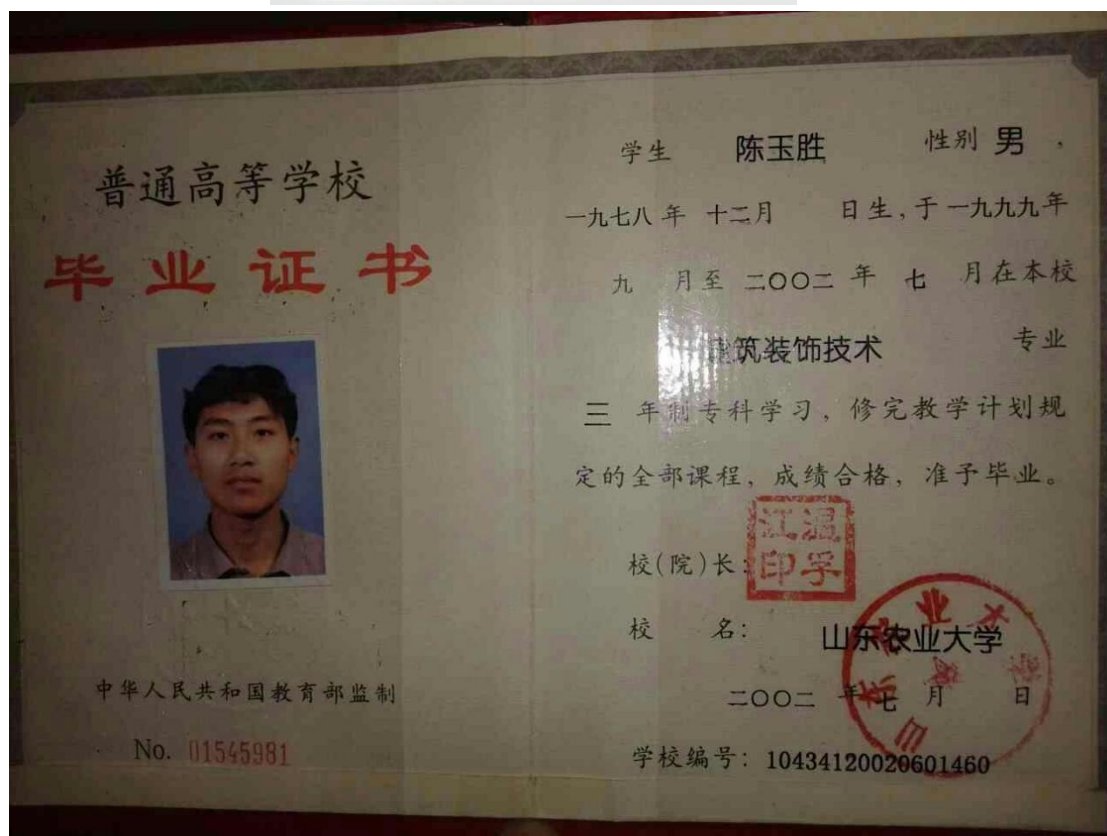 普通高等学校
毕业证书
中华人民共和国教育部监制
No. 01545981
学生 陈玉胜 性别 男，
一九七八年 十二月 日生，于一九九九年
九 月至 二〇〇二 年 七 月在本校
建筑装饰技术 专业
三 年制专科学习，修完教学计划规
定的全部课程，成绩合格，准予毕业。
校(院)长：
温孚江印
校 名： 山东农业大学
二〇〇二 年 七 月 日
学校编号：10434120020601460
山东农业大学